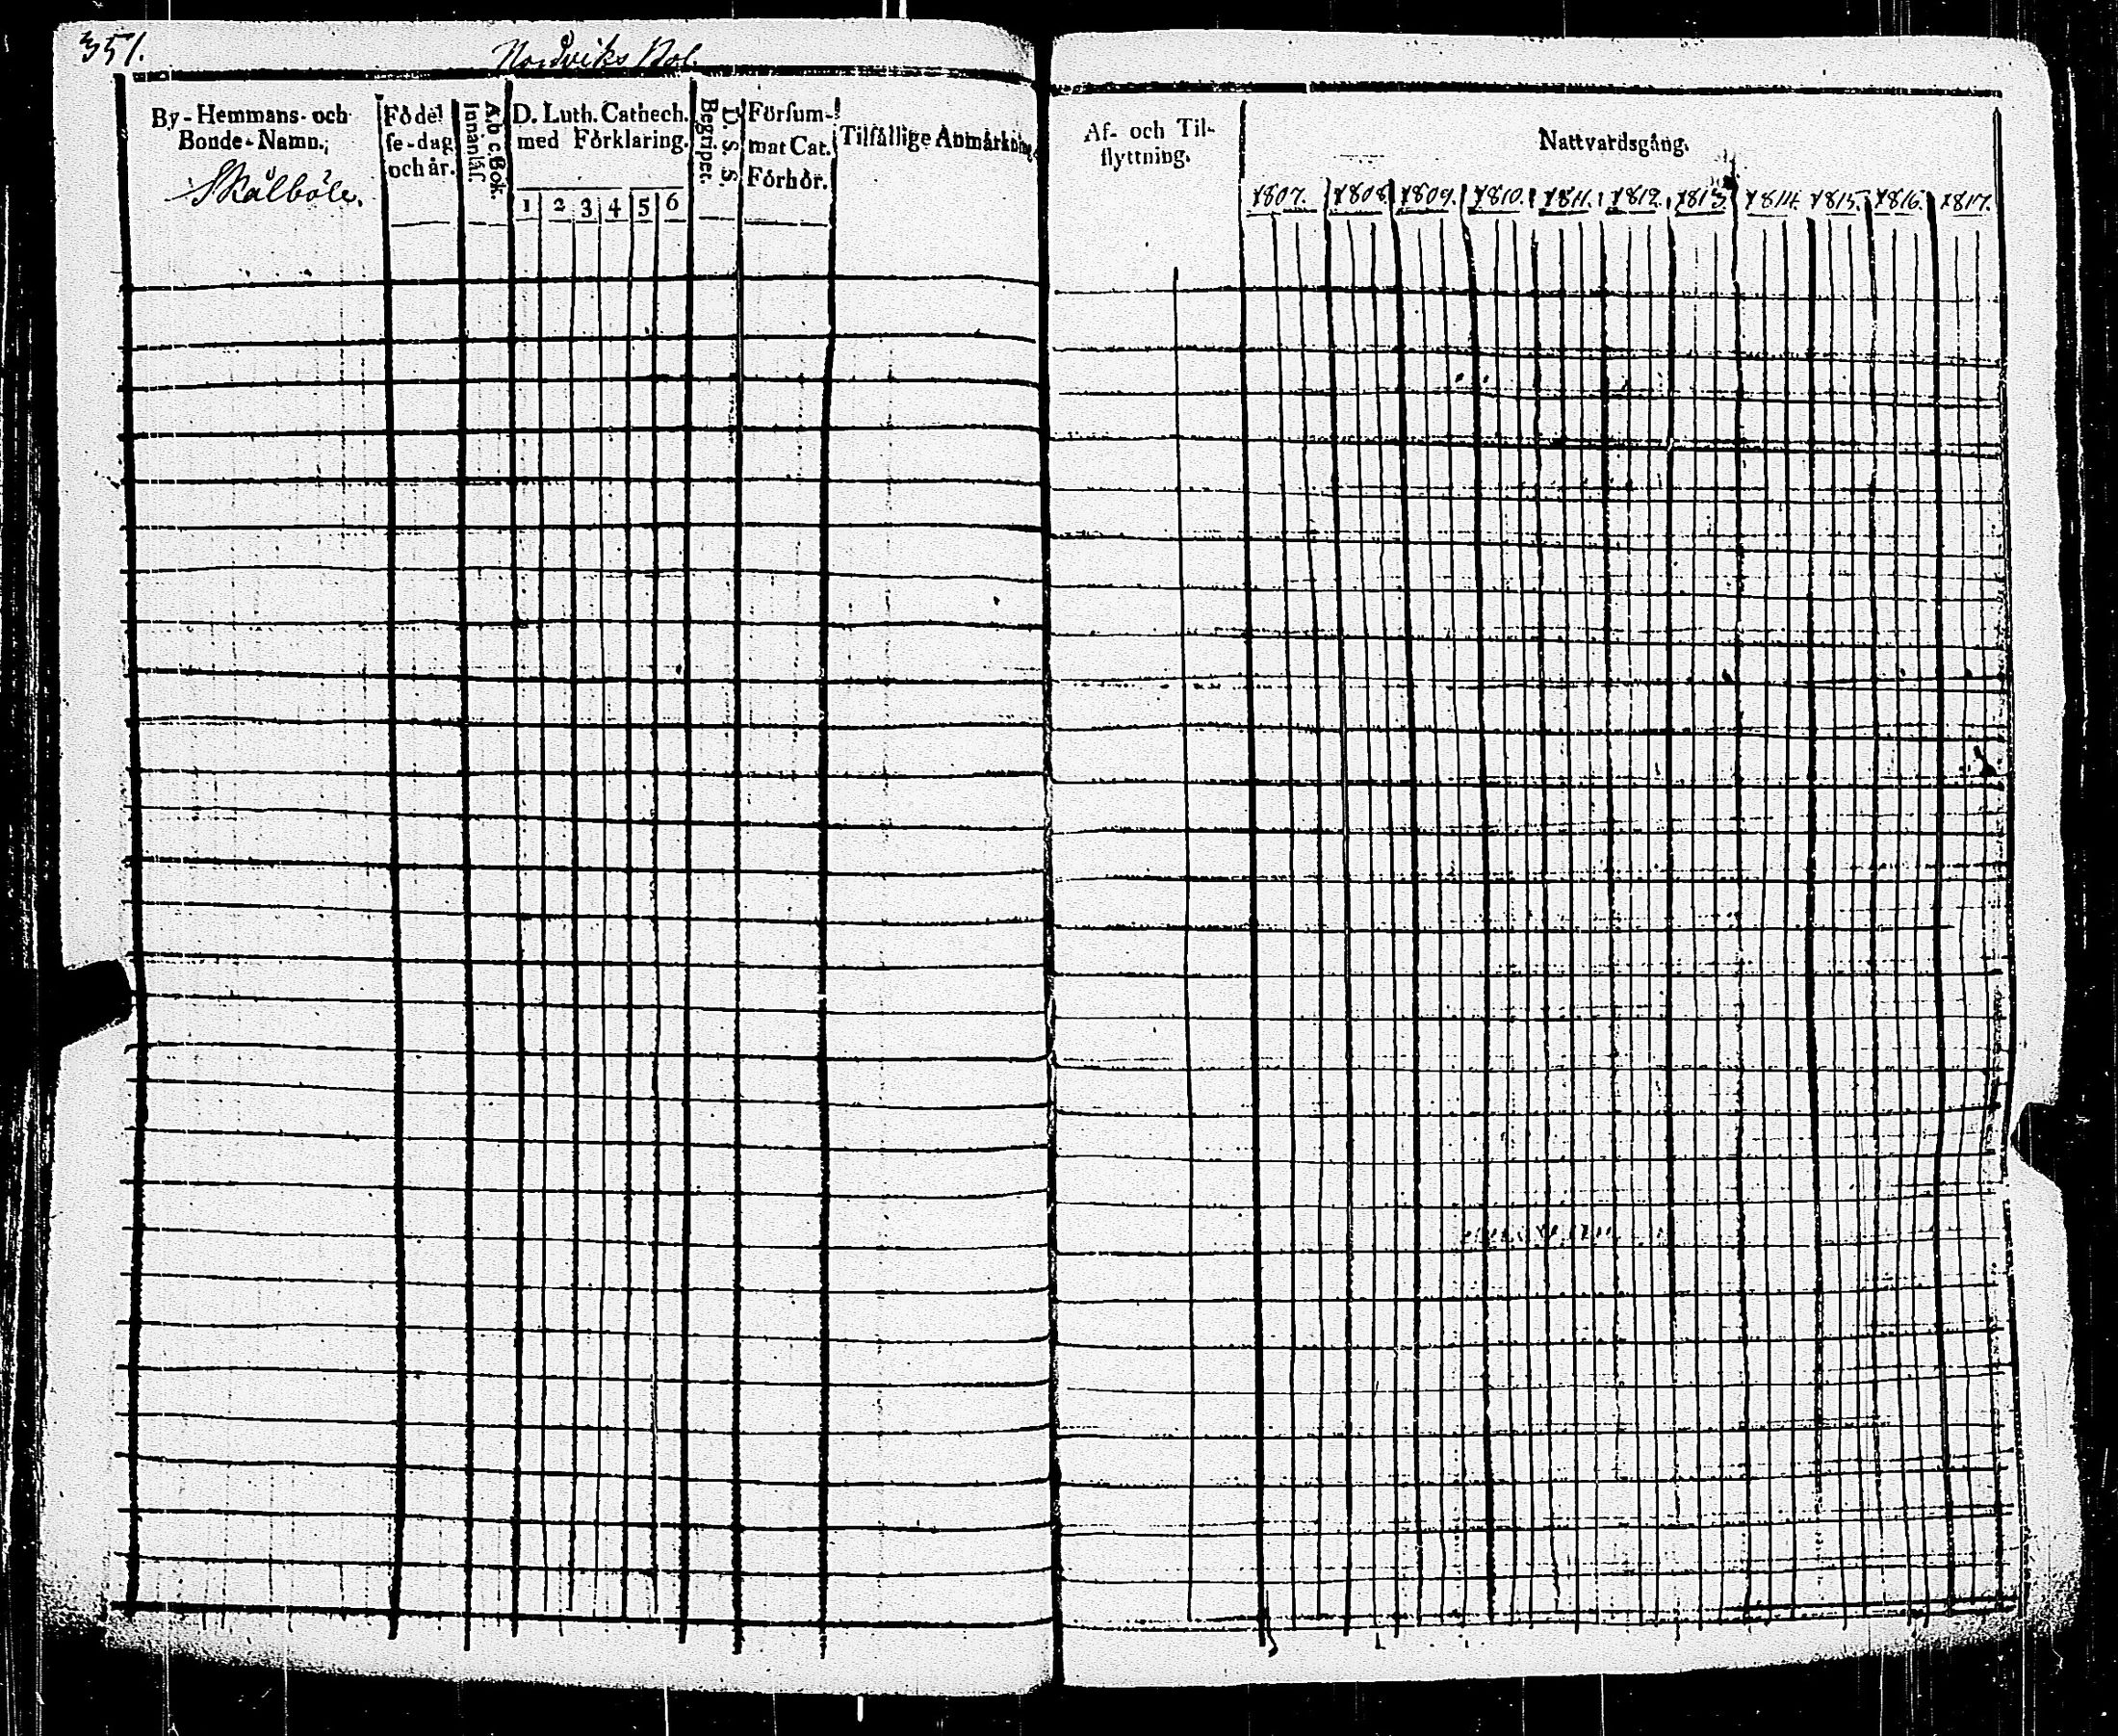 351.
Nordviks Bol.
By-Hemmans- och
Bonde-Namn.
Skålböle.
Födel
se-dag
och år.
A b c Bok.
Innanläs.
D. Luth. Cathech.
med Förklaring.
1 2 3 4 5 6
D. S. S.
Begripet.
Försum-
mat Cat.
Förhör.
Tilfällige Anmärkning
Af- och Til-
flyttning.
Nattvardsgång.
1807. 1808. 1809. 1810. 1811. 1812. 1813. 1814. 1815. 1816. 1817.